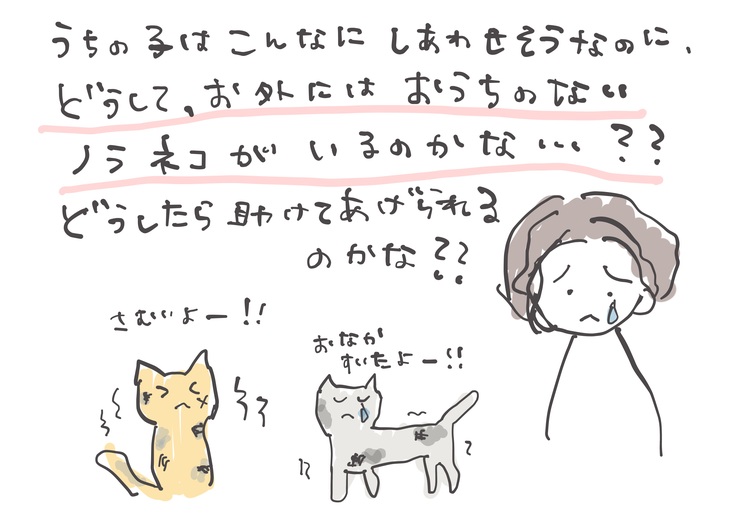 うちの子はこんなにしあわせそうなのに、
どうして、お外にはおうちのない
ノラネコがいるのかな…??
どうしたら助けてあげられる
のかな??
さむいよー!!
おなか
すいたよー!!